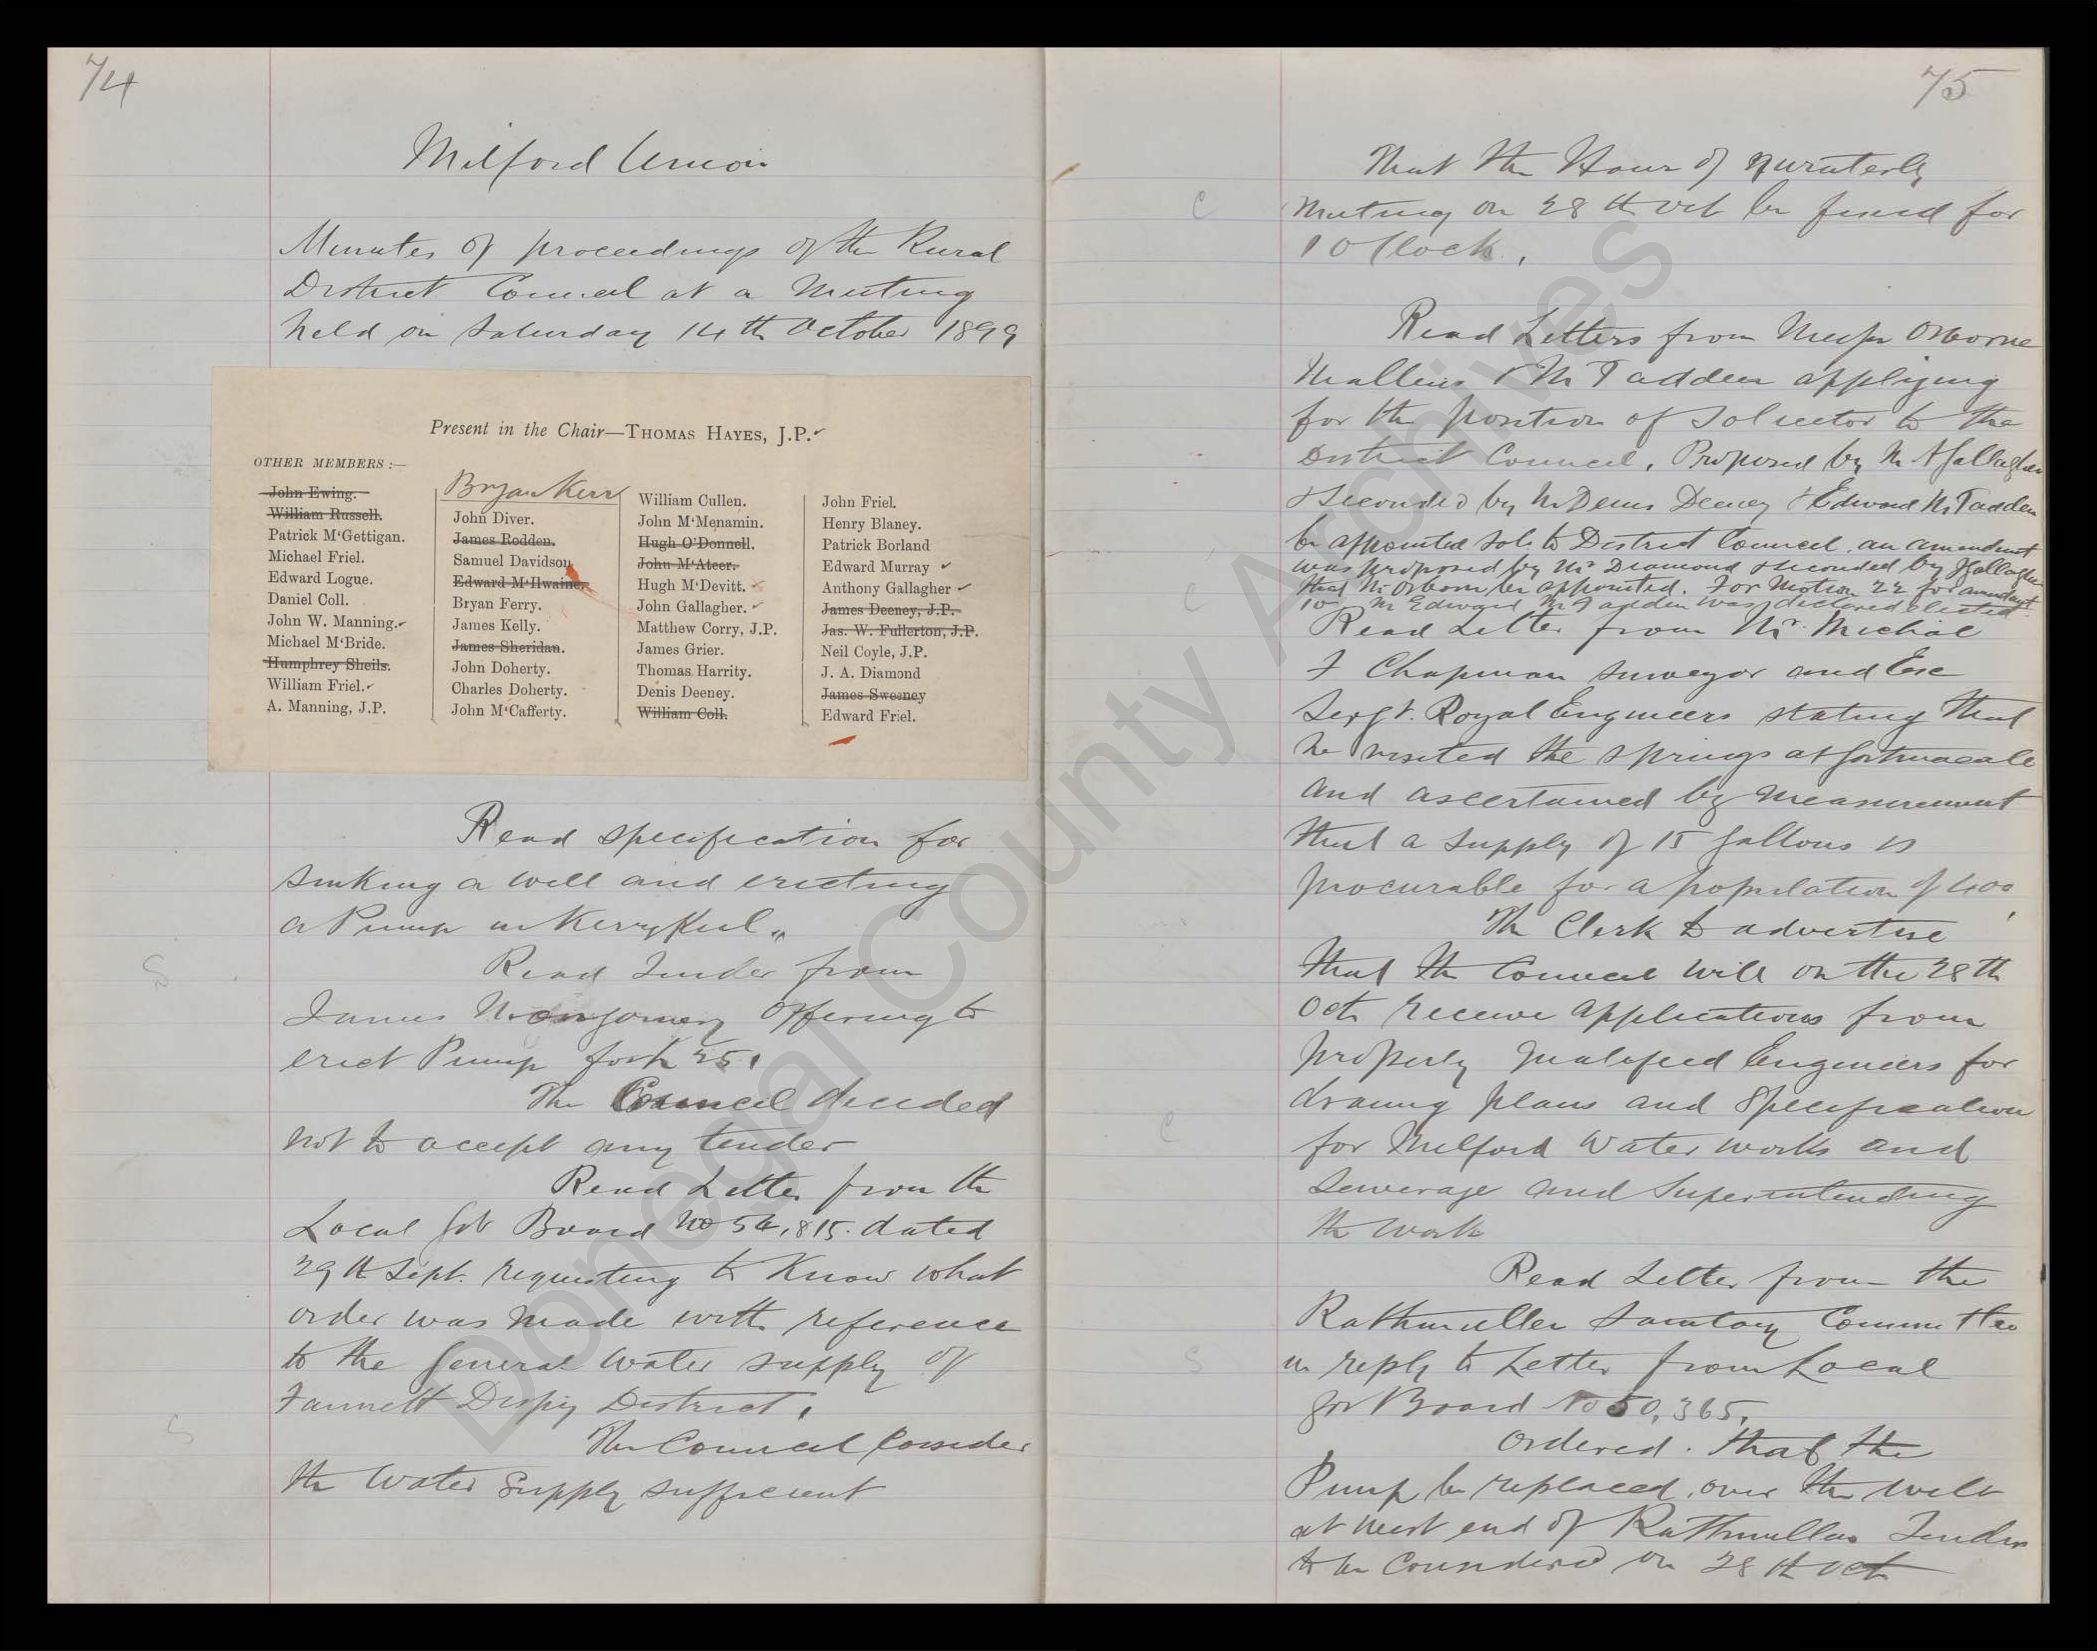 74
Milford Union
Minutes of proceedings of the Rural
District Council at a Meeting
held on Saturday 14th October 1899
Present in the Chair—THOMAS HAYES, J.P.
OTHER MEMBERS :—
John Ewing.
William Russell.
Patrick M'Gettigan.
Michael Friel.
Edward Logue.
Daniel Coll.
John W. Manning.
Michael M'Bride.
Humphrey Sheils.
William Friel.
A. Manning, J.P.
Bryan Kerr
John Diver.
James Rodden.
Samuel Davidson
Edward M'Ilwaine.
Bryan Ferry.
James Kelly.
James Sheridan.
John Doherty.
Charles Doherty.
John M'Cafferty.
William Cullen.
John M'Menamin.
Hugh O'Donnell.
John M'Ateer.
Hugh M'Devitt.
John Gallagher.
Matthew Corry, J.P.
James Grier.
Thomas Harrity.
Denis Deeney.
William Coll.
John Friel.
Henry Blaney.
Patrick Borland
Edward Murray
Anthony Gallagher
James Deeney, J.P.
Jas. W. Fullerton, J.P.
Neil Coyle, J.P.
J. A. Diamond
James Sweeney
Edward Friel.
Read specification for
sinking a well and erecting
a Pump in Kerrykeel
Read Tender from
James Montgomery offering to
erect Pump for £25.
The Council decided
not to accept any tender
Read Letter from the
Local Gov Board No 54,815. dated
29th Sept. requesting to know what
order was made with reference
to the General Water supply of
Fannett Dispy District.
The Council consider
the Water Supply sufficient
75
That the Hour of quraterly
Meeting on 28th Oct be fixed for
1 O Clock.
Read Letters from Messrs Osborne
Mullins & McFadden applying
for the position of Solicitor to the
District Council. Proposed by Mr A Gallagher
& Seconded by Mr Denis Deeney & Edward McFadden
be appointed Sol. to District Council. an amendment
was proposed by Mr Diamond & seconded by J Gallagher
that Mr Osborne be appointed. For Motion 22 for amendmt
10 Mr Edward McFadden was declared elected
Read Letter from Mr. Michial
F Chapman Surveyor and Exe
Sergt. Royal Engineers stating that
he visited the springs at Gortmacale
and ascertained by measurement
that a supply of 15 Gallons is
procurable for a population of 400
The Clerk to advertise
that the Council will on the 28th
Oct. receive applications from
properly qualified Engineers for
drawing plans and Specification
for Milford Water works and
Sewerage and Superintending
the work
Read Letter from the
Rathmullen Sanitary Committee
in reply to Letter from Local
Gov Board No 50,365.
Ordered. That the
Pump be replaced over the well
at West end of Rathmullan Tender
to be Considered on 28th Oct
Donegal County Archives